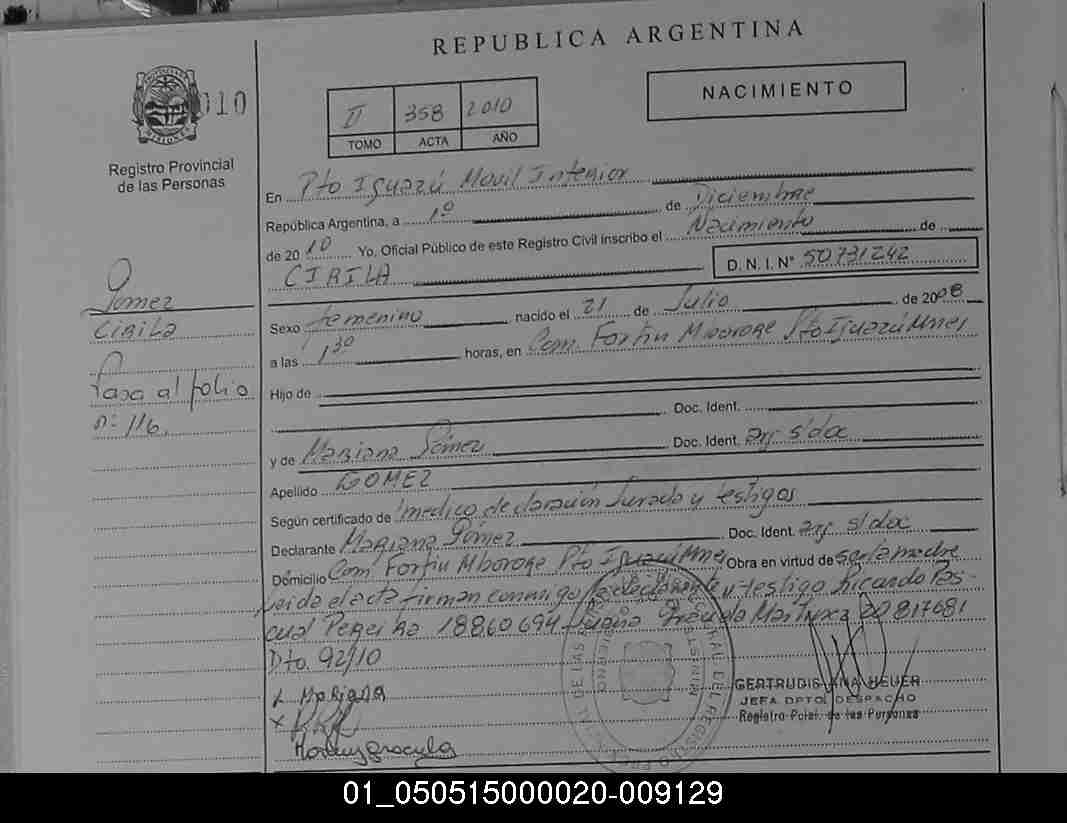 REPUBLICA ARGENTINA
010
II 358 2010
TOMO ACTA AÑO
NACIMIENTO
Registro Provincial
de las Personas
En Pto Iguazú Movil Interior
República Argentina, a 1º de Diciembre
de 2010 Yo, Oficial Público de este Registro Civil inscribo el Nacimiento de
CIRILA D. N. I. Nº 50731242
Gomez
CIRILA
Pasa al folio
nº 116.
Sexo femenino nacido el 21 de Julio de 2008
a las 13º horas, en Com. Fortin Mborore Pto Iguazú Mnes
Hijo de
Doc. Ident.
y de Mariana Gómez Doc. Ident. arg s/doc
Apellido GOMEZ
Según certificado de medico declaración Jurada y testigos
Declarante Mariana Gómez Doc. Ident. arg s/doc
Domicilio Com. Fortin Mborore Pto Iguazú Mnes Obra en virtud de ser la madre
Leida el acta firman conmigo la declarante y testigo Ricardo Pas-
cual Pereira 18860694 20817681
Dto. 92/10
x Mariana
x
GERTRUDIS ANA HEUER
JEFA DPTO. DESPACHO
Registro Pcial. de las Personas
01_050515000020-009129